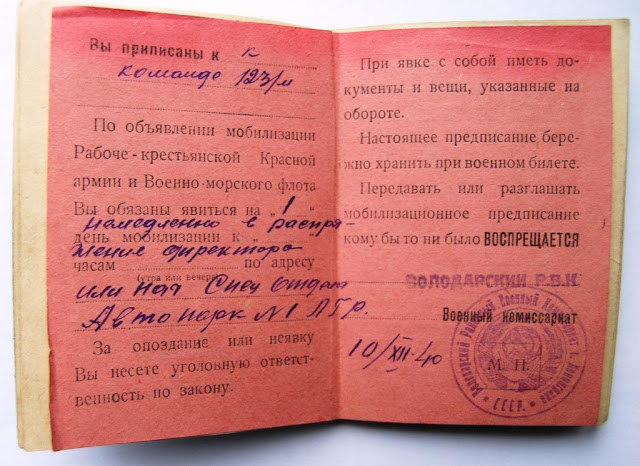 Вы приписаны к к
команде 123/м
По объявлении мобилизации
Рабоче-крестьянской Красной
армии и Военно-морского флота
Вы обязаны явиться на „1“
немедленно в распоря-
день мобилизации к
жение директора
часам по адресу
(утра или вечера)
или нач Спец Отдела
Автопарк №1 ЛГР.
За опоздание или неявку
Вы несете уголовную ответст-
венность по закону.
При явке с собой иметь до-
кументы и вещи, указанные на
обороте.
Настоящее предписание бере-
жно хранить при военном билете.
Передавать или разглашать
мобилизационное предписание
кому бы то ни было ВОСПРЕЩАЕТСЯ
ВОЛОДАРСКИЙ Р.В.К
Военный комиссариат
10/XII-40
М. П.
Володарский Районный Военный Комиссариат г. Ленинграда
СССР